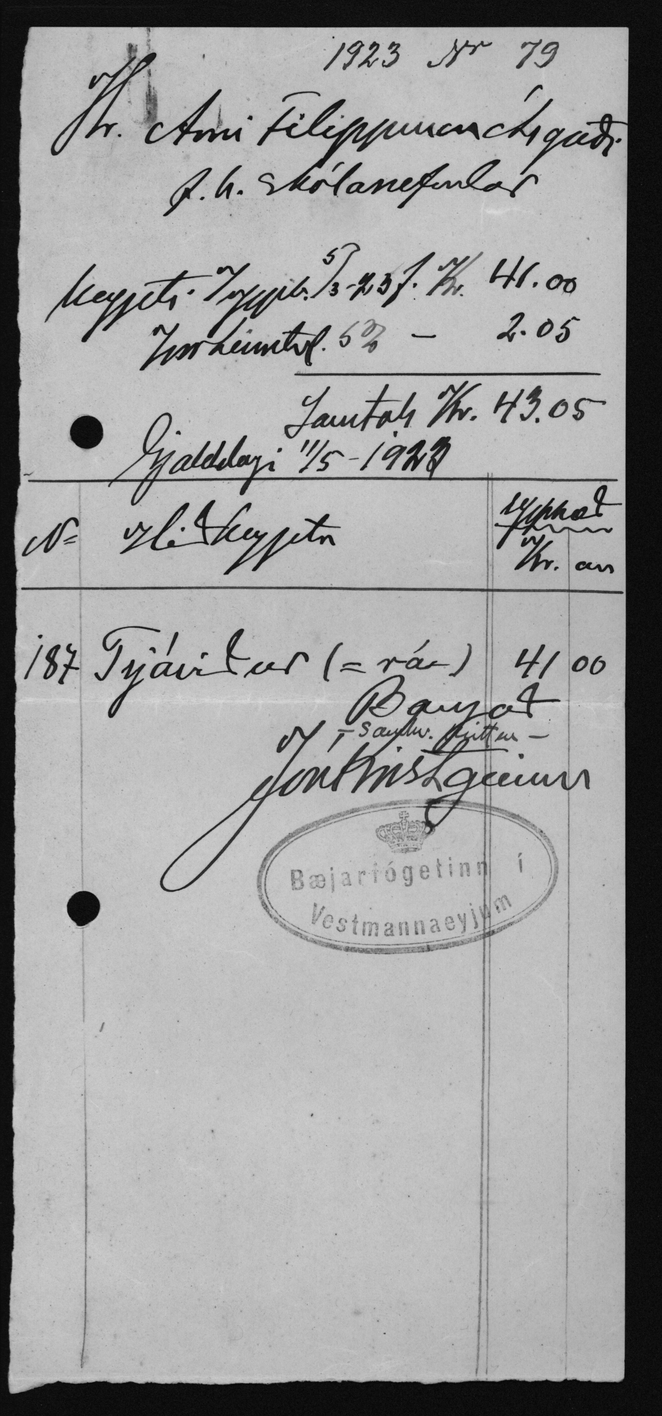 1923 Nr 79
Hr. Árni Filippusson Ásgarði
f.h. skólanefndar
Keypti á uppb. 5/3-23 f. Kr. 41.00
Innheimtul. 5% — 2.05
Samtals Kr. 43.05
Gjalddagi 11/5-1923
No Hið keypta upphæð
Kr. au
187 Tjáviður (= rá-) 41 00
Borgað
Jón
Bæjarfógetinn í
Vestmannaeyjum